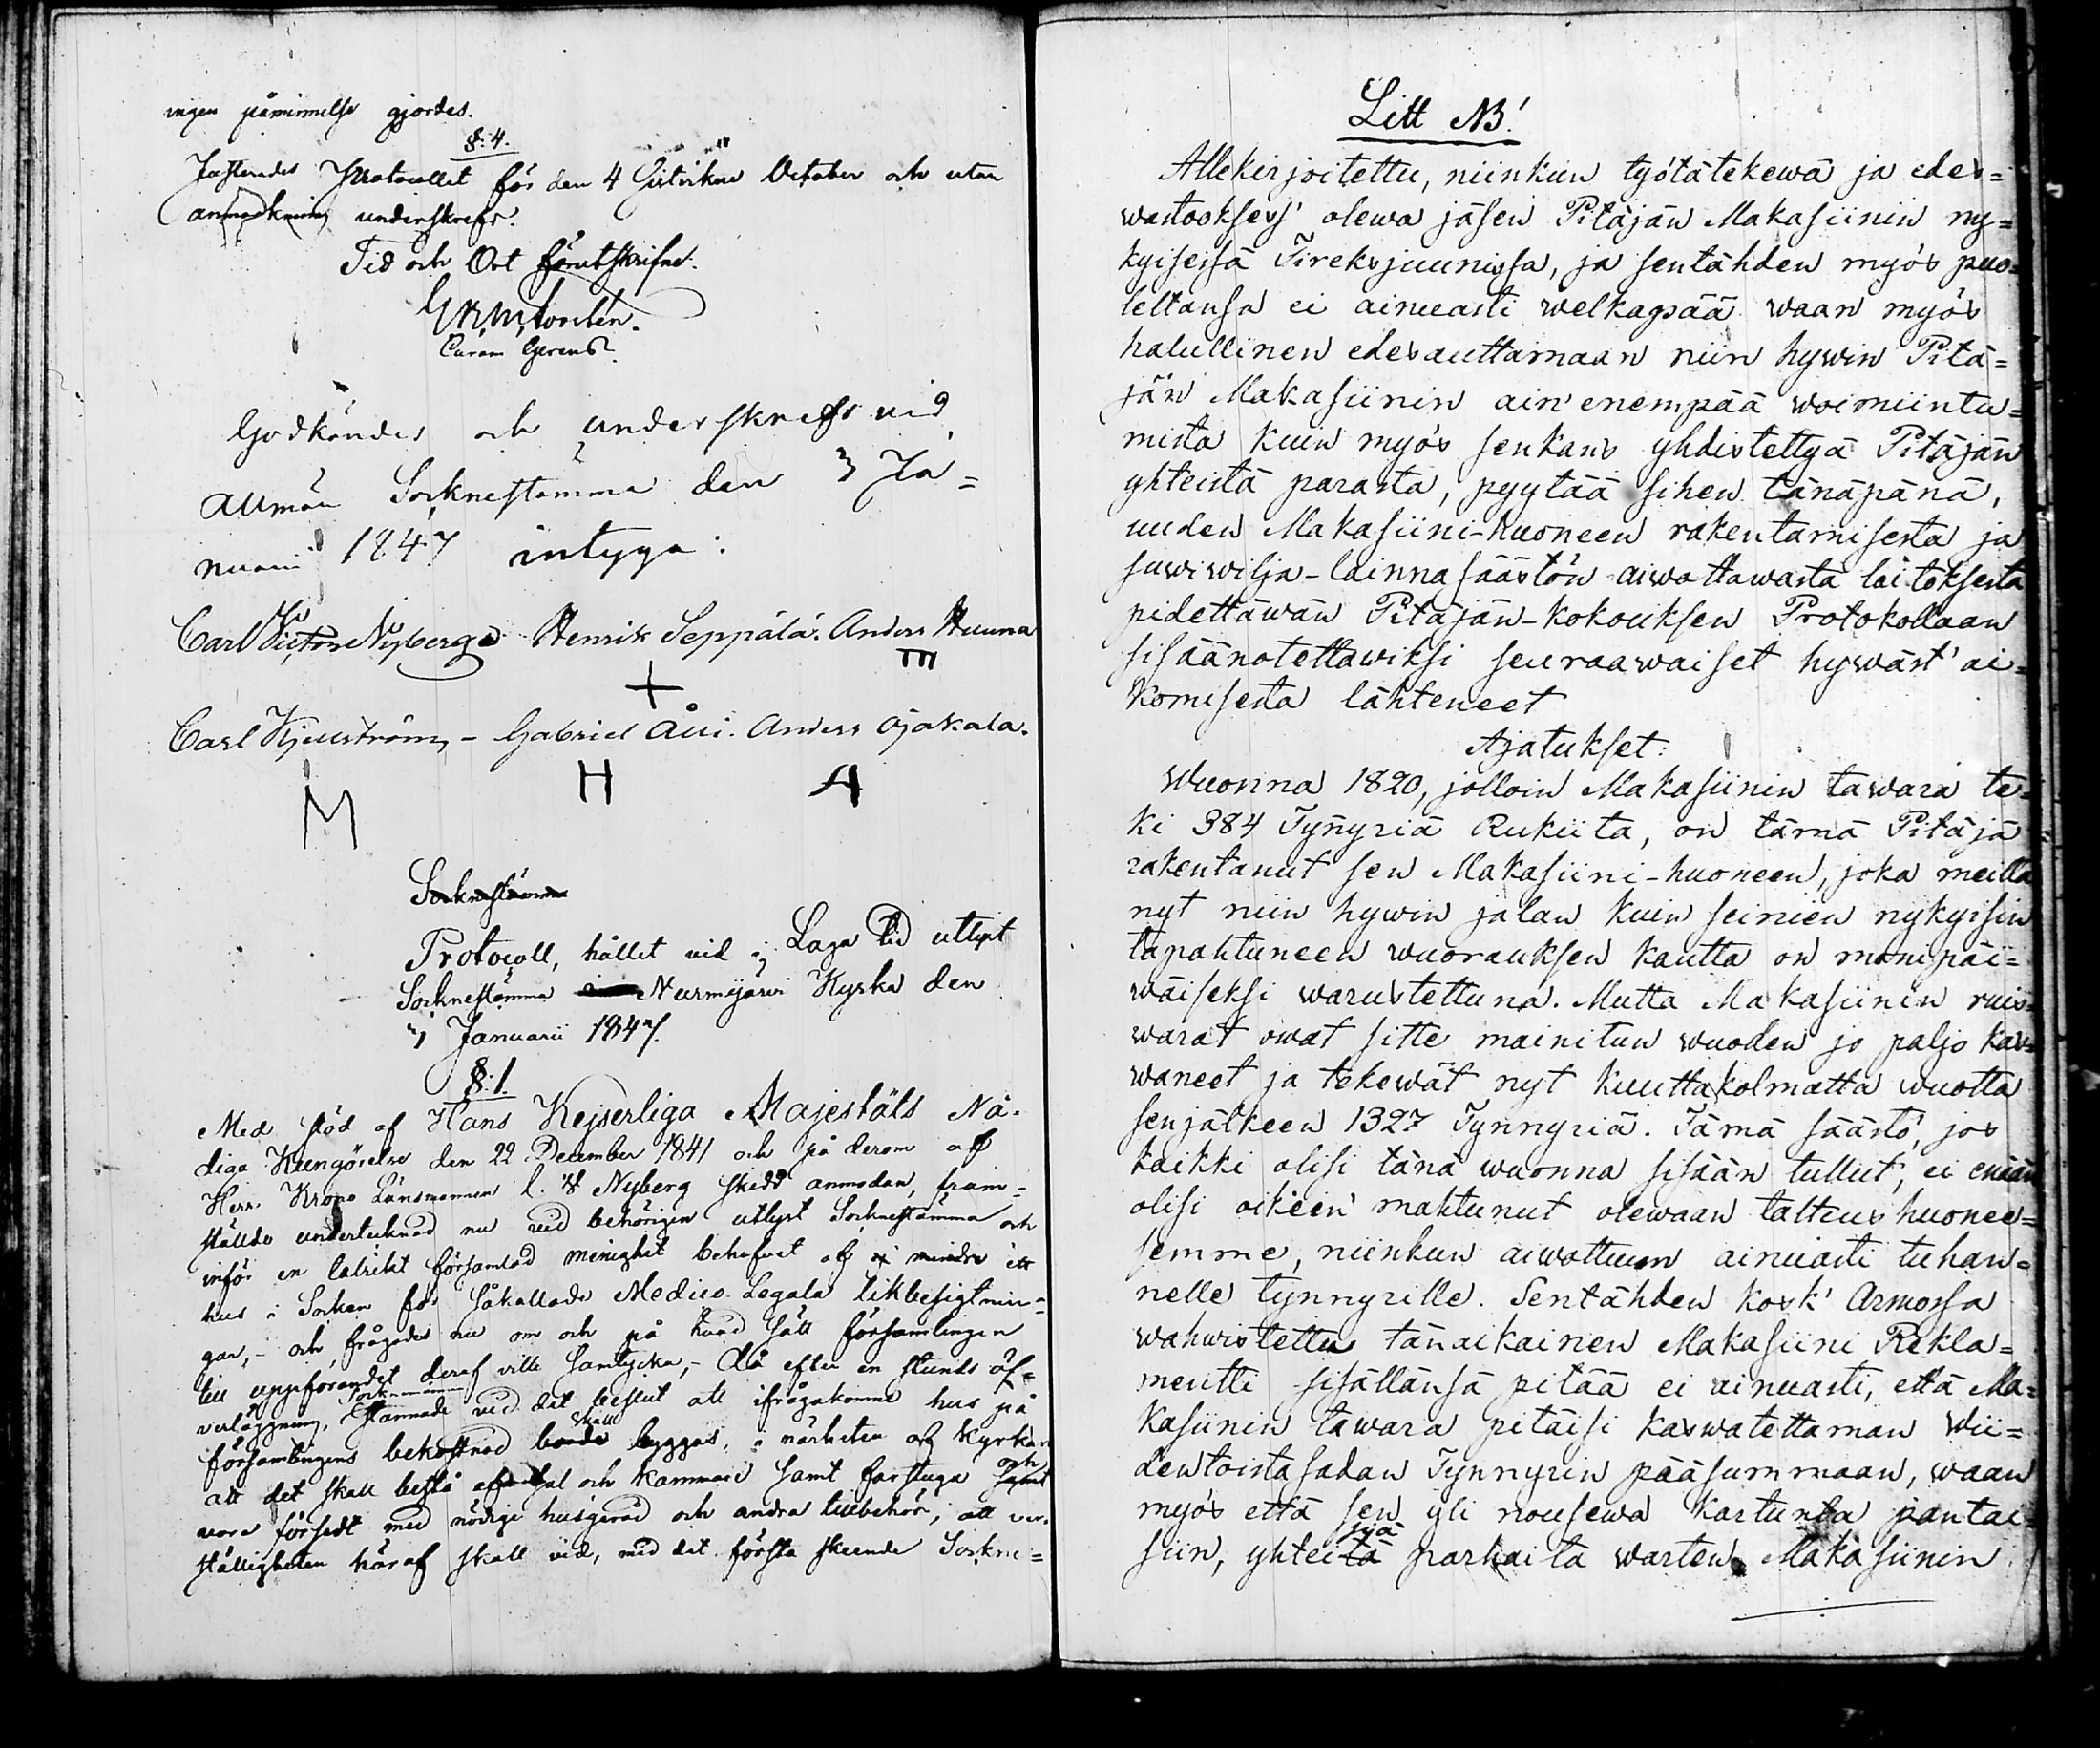 ingen påminnelse gjordes.
§: 4.
Justerades Protocollet för den 4 sistvikne October och utan
anmärkning underskrefs.
Tid och Ort förutskrifne.
Curam Gerens.
Godkändes och underskrefs vid
allmän Socknestämma den 3 Ja=
nuarii 1847 intyga:
Carl Victor Nyberg Henrik Seppälä. Anders Huuna
Carl Kjellström, - Gabriel Äui. Anders Ojakala.
M H A
Socknestämma
Protocoll, hållet vid i Laga tid utlyst
Socknestämma i Nurmijärvi Kyrka den
3 Januarii 1847.
§: 1
Med stöd af Hans Kejserliga Majestäts Nå-
diga Kungörelse den 22 December 1841 och på derom af
Herr Krono Länsmannen C. V. Nyberg skedd anmodan, fram=
stälde undertecknad nu vid behörigen utlyst Socknestämma och
inför en talrikt församlad menighet behofvet af ej mindre ett
hus i Socken för såkallade Medico-Legala likbesigtnin=
gar, - och frågades nu om och på hvad sätt församlingen
till uppförandet deraf ville samtycka, - Då efter en stunds öf=
verläggning, Socknemännen stannade vid det beslut att ifrågakomne hus på
församlingens bekostnad borde skall byggas, i närheten af Kyrkan
att det skall bestå af sal och kammare samt farstuga samt och
vara försedt med nödige husgeråd och andra tillbehör, att ver-
ställigheten häraf skall vid, med det första skeende Sockne=
Litt NB!
Allekirjoitettu, niinkuin työtätekewä ja edes=
wastooksess' olewa jäsen Pitäjän Makasiinin ny=
kyisessä Tireksjuunissa, ja sentähden myös puo=
leltansa ei ainuasti welkapää waan myös
halullinen edesauttamaan niin hywin Pitä=
jän Makasiinin ain' enempää woimiintu=
mista kuin myös senkans yhdistettyä Pitäjän
yhteistä parasta, pyytää sihen tänäpänä,
uuden Makasiini-huoneen rakentamisesta ja
suwiwilja-lainnasäästön aiwottawasta laitoksesta
pidettäwän Pitäjän-kokouksen Protokollaan
sisäänotettawiksi seuraawaiset hywäst' ai=
komisesta lähteneet
Ajatukset:
Wuonna 1820, jolloin Makasiinin tawara te=
ki 384 Tynyriä Rukiita, on tämä Pitäjä
rakentanut sen Makasiini-huoneen, joka meillä
nyt niin hywin jalan kuin seinien nykyisin
tapahtuneen wuorauksen kautta on monipäi=
wäiseksi warustettuna. Mutta Makasiinin ruis=
warat owat sitte mainitun wuoden jo paljo kas=
waneet ja tekewät nyt kuuttakolmatta wuotta
senjälkeen 1327 Tynnyriä. Tämä säästö, jos
kaikki olisi tänä wuonna sisään tullut, ei enään
olisi oikein mahtunut olewaan talteus huonee=
semme, niinkun aiwottuun ainuasti tuhan=
nelle tynnyrille. Sentähden kosk' Armossa
wahwistettu tänaikainen Makasiini Rekla=
mentti sisällänsä pitää ei ainuasti, että Ma=
kasiinin tawara pitäisi kaswatettaman wii=
dentoistasadan Tynnyrin pääsummaan, waan
myös että sen yli nousewa kartunta pantai=
siin, yhteitä siä parhaita warten Makasiinin